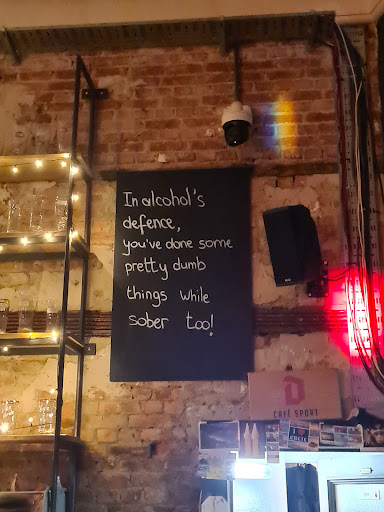 In alcohol's
defence,
you've done some
pretty dumb
things while
sober too!
D
CAFÉ SPORT
CRETE